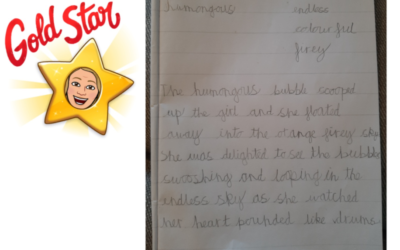 Gold Star
humongous
endless
colourful
fizzy
The humongous bubble scooped
up the girl and she floated
away into the orange fizzy sky
She was delighted to see the
swooshing and looping in the
endless sky as she watched
her heart pounded like drums